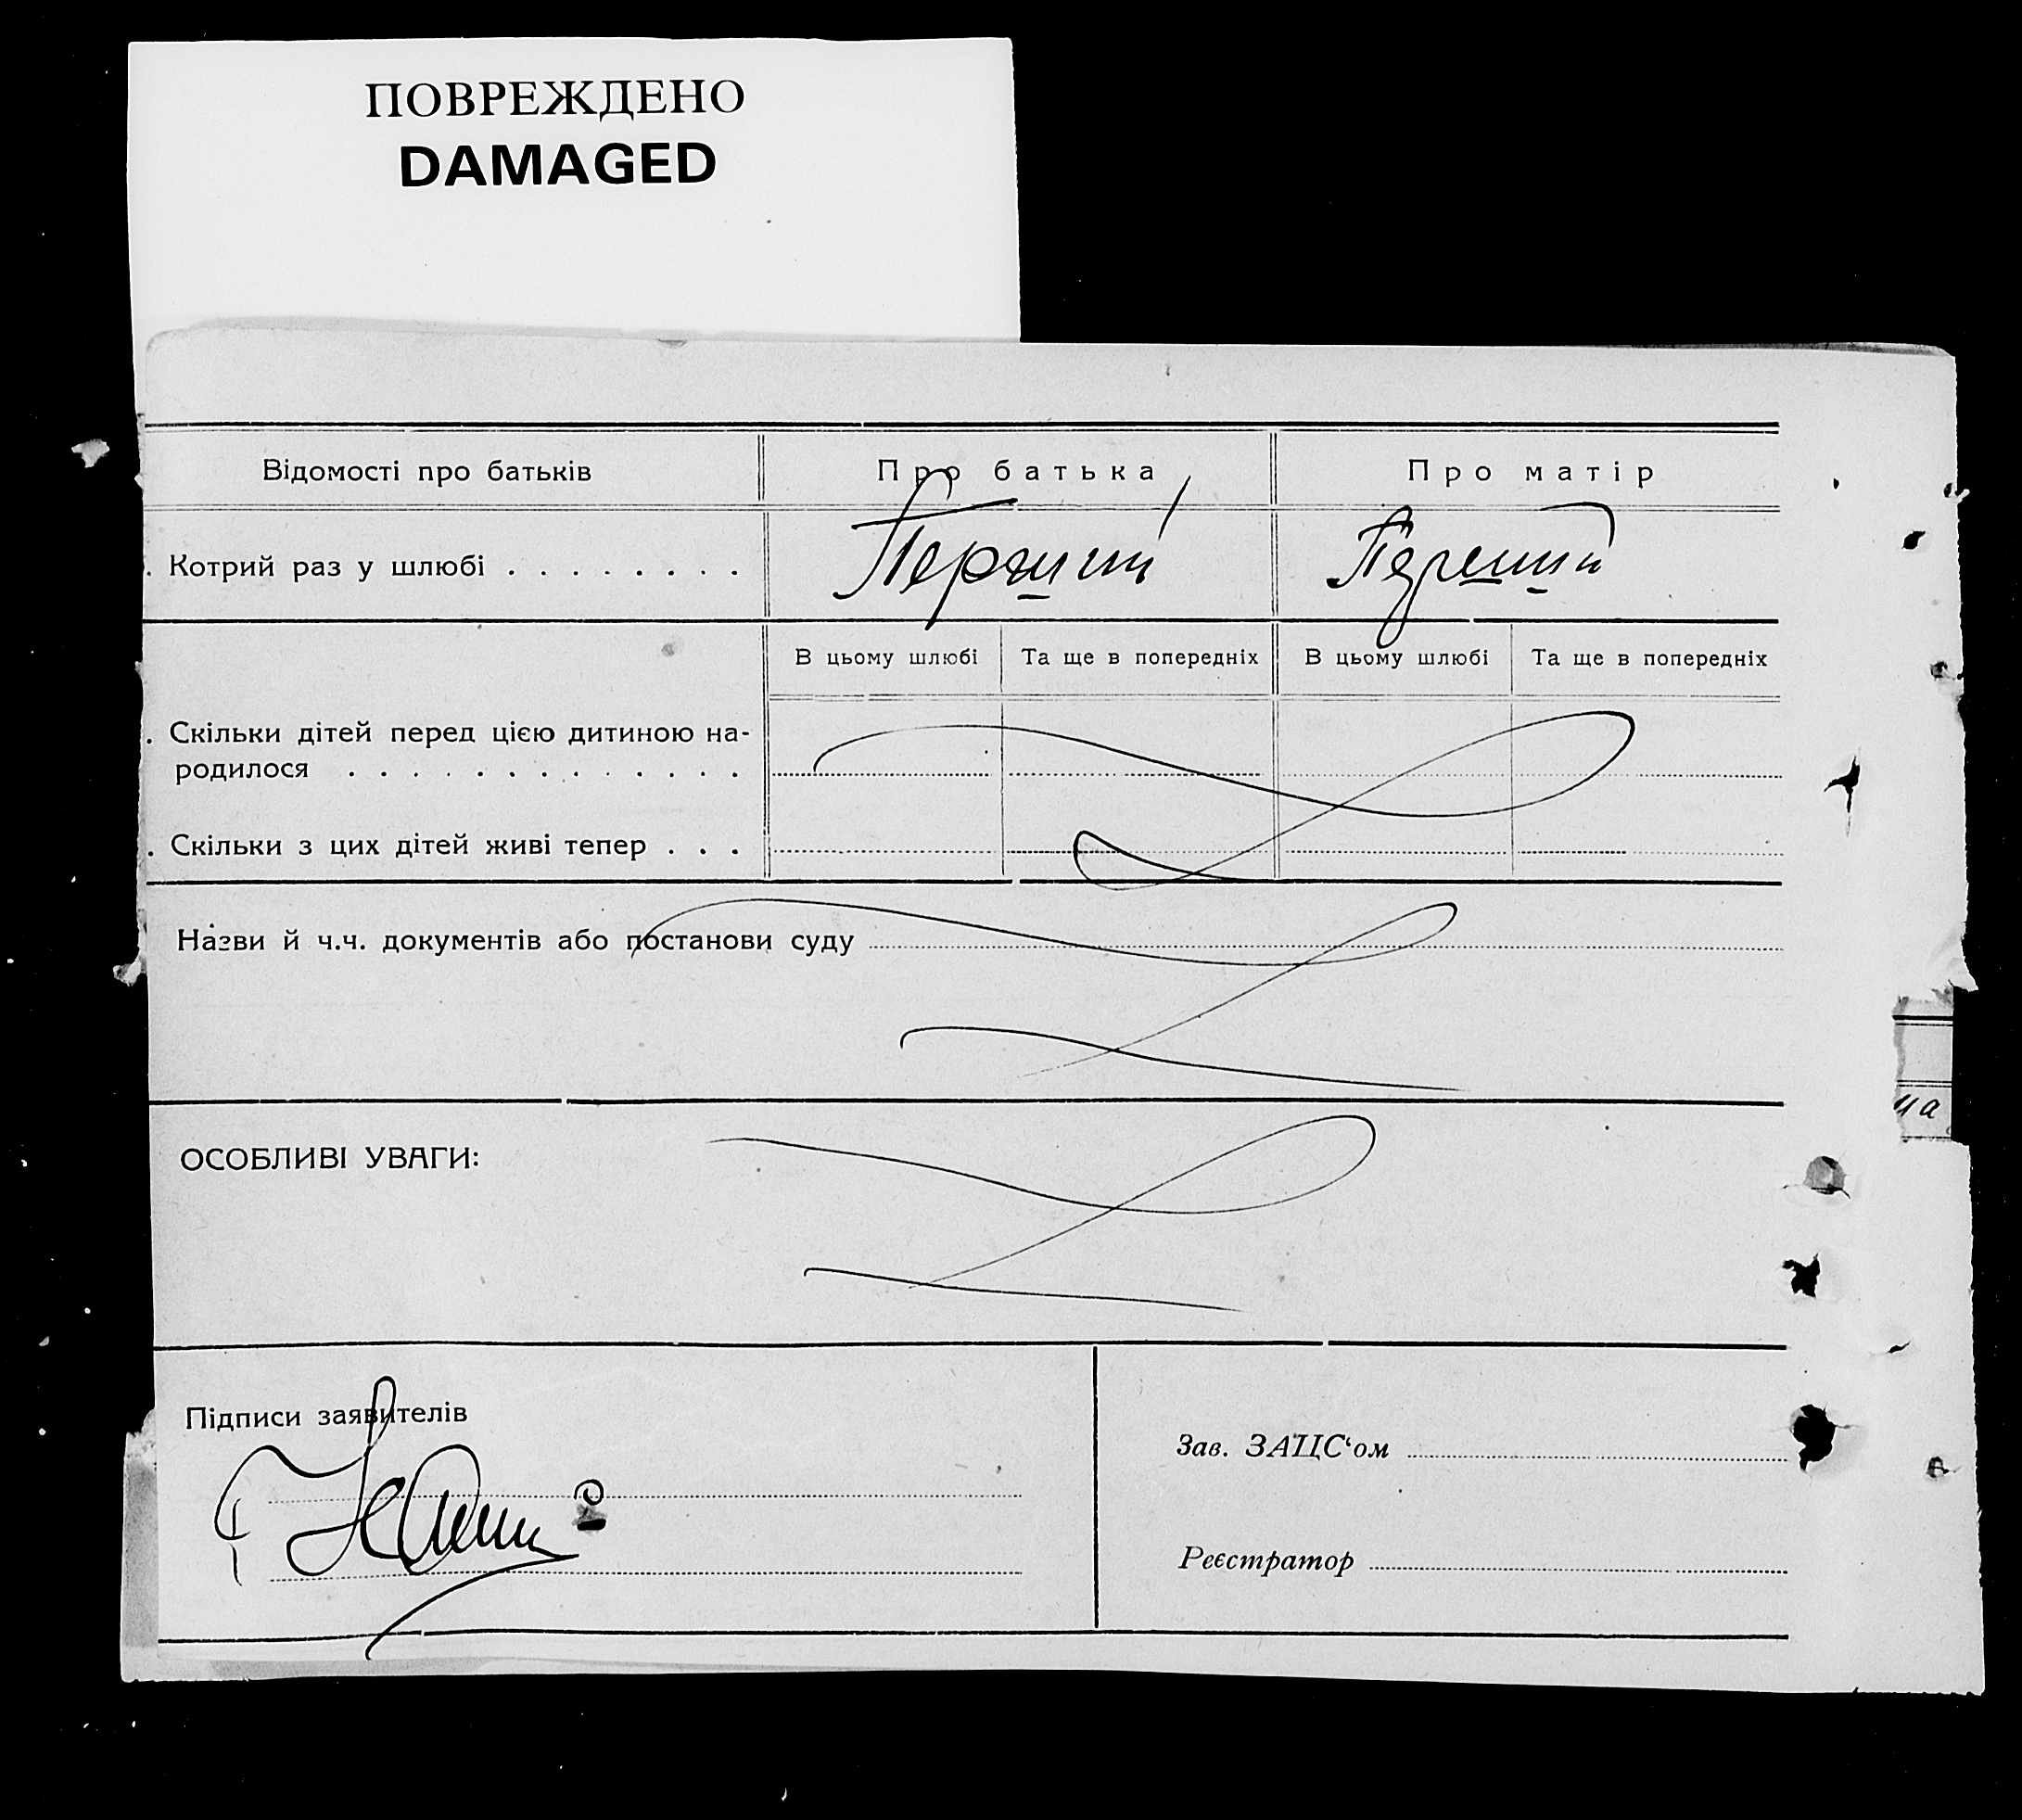 ПОВРЕЖДЕНО
DAMAGED
Відомості про батьків Про батька Про матір
. Котрий раз у шлюбі . . . . . . . . Перший Перший
В цьому шлюбі Та ще в попередніх В цьому шлюбі Та ще в попередніх
. Скільки дітей перед цією дитиною на-
родилося . . . . . . . . . . . . . .
. Скільки з цих дітей живі тепер . . .
Назви й ч.ч. документів або постанови суду
на
ОСОБЛИВІ УВАГИ:
Підписи заявителів
Зав. ЗАЦС‘ом
Реєстратор